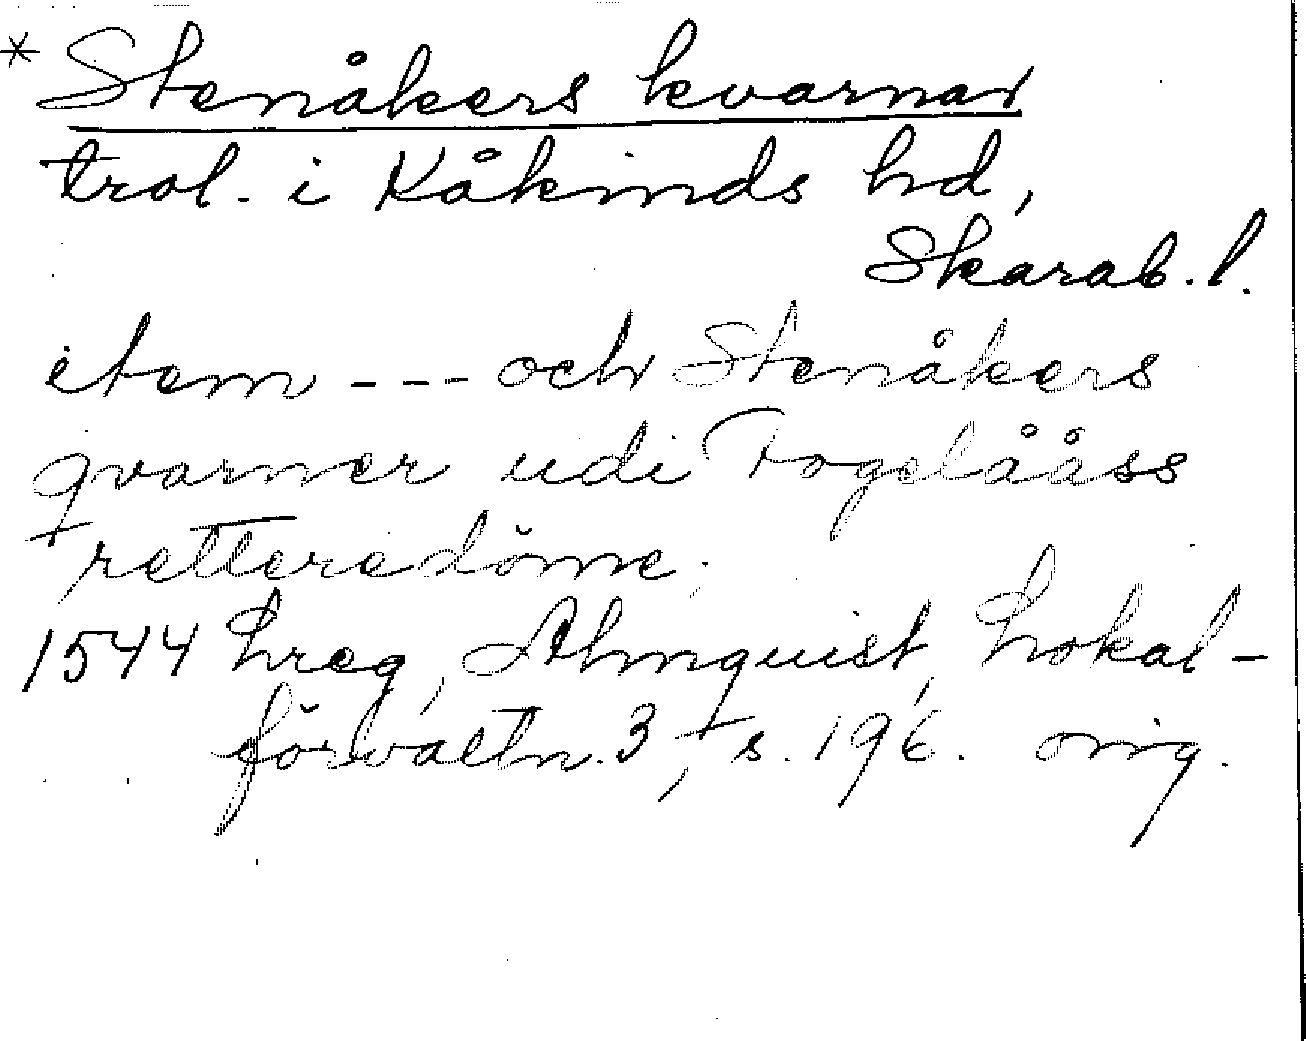 * Stenåkers kvarnar
trol. i Kåkinds hd,
Skarab. l.
item --- och Stenåkers
qvarner udi Fogelååss
retteredöme.
1544 Lreg, Almquist, Lokal-
förvaltn. 3, s. 196. orig.